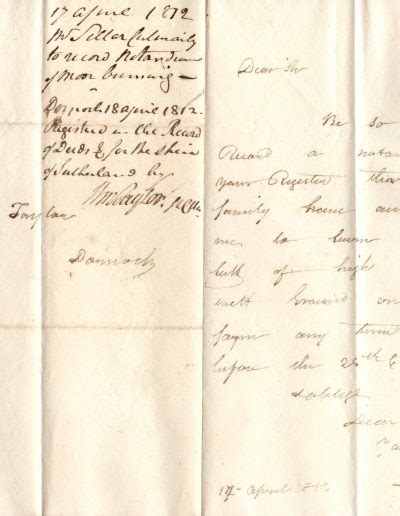 17 April 1812
Mr Sellar Culmaily
to record Notandum
of Moor burning —
Dornoch 18 April 1812.
Registered in the Record
of Deeds & for the Shire
of Sutherland by
Wm Taylor
Taylor
Dornoch
Dear Sir
Be so
Record a nota
your Register tha
family have au
me to burn
bill of high
next
farm any time
before the 25th
&
oblige
Dear
17 April 1812